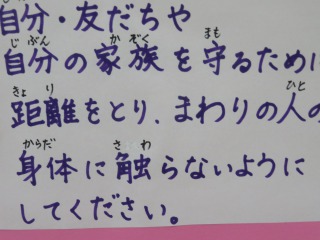 自分・友だちや
自分の家族を守るために
距離をとり、まわりの人の
身体に触らないように
してください。